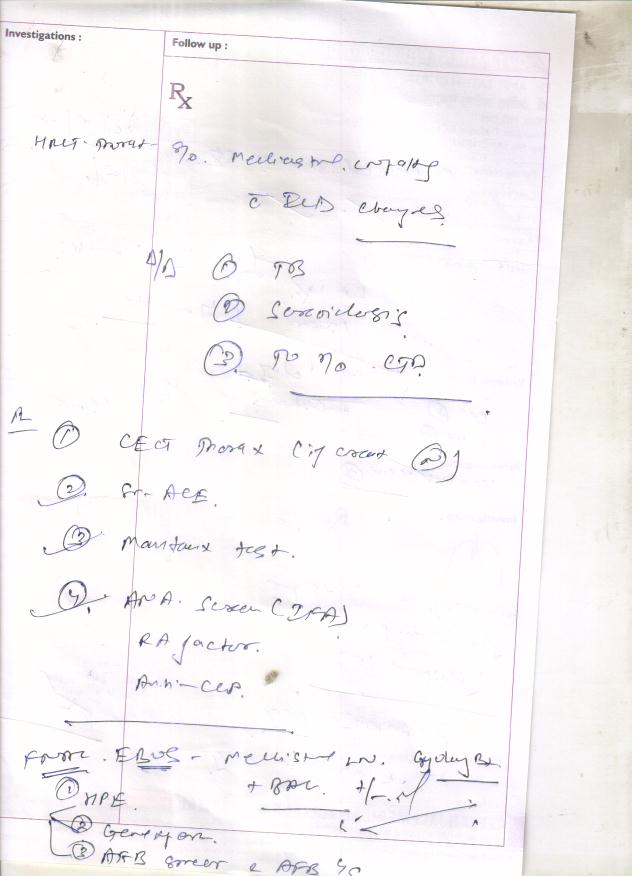 Investigations :
Follow up :
Rx
HRCT-Thorax - S/o. Mediastinal
c̄ ILD changes
D/D ① TB
② Sarcoidosis
③ To r/o CTD.
① CECT Thorax (if creat Ⓝ)
② Sr. ACE.
③ Mantoux test.
④ ANA. Screen (IFA)
RA factor.
Anti-CCP.
EBUS - LN.
+ BAL. +/-
① HPE.
② Genexpert.
③ AFB smear c AFB